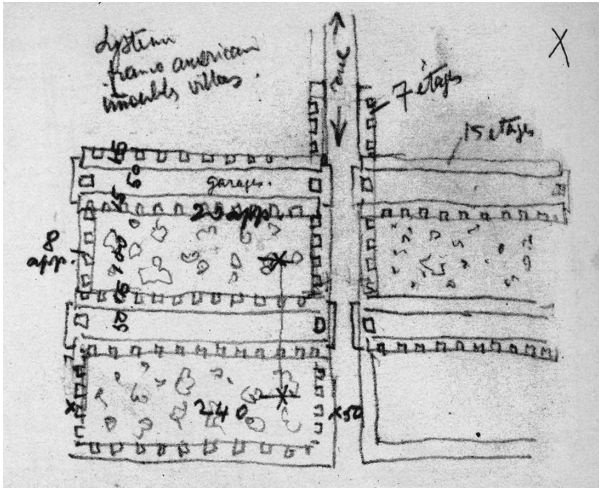 System
franco american
immeubles villas.
rue
X
7 étages
15 etages
garages.
23 app.
8
app.
50
240
x50